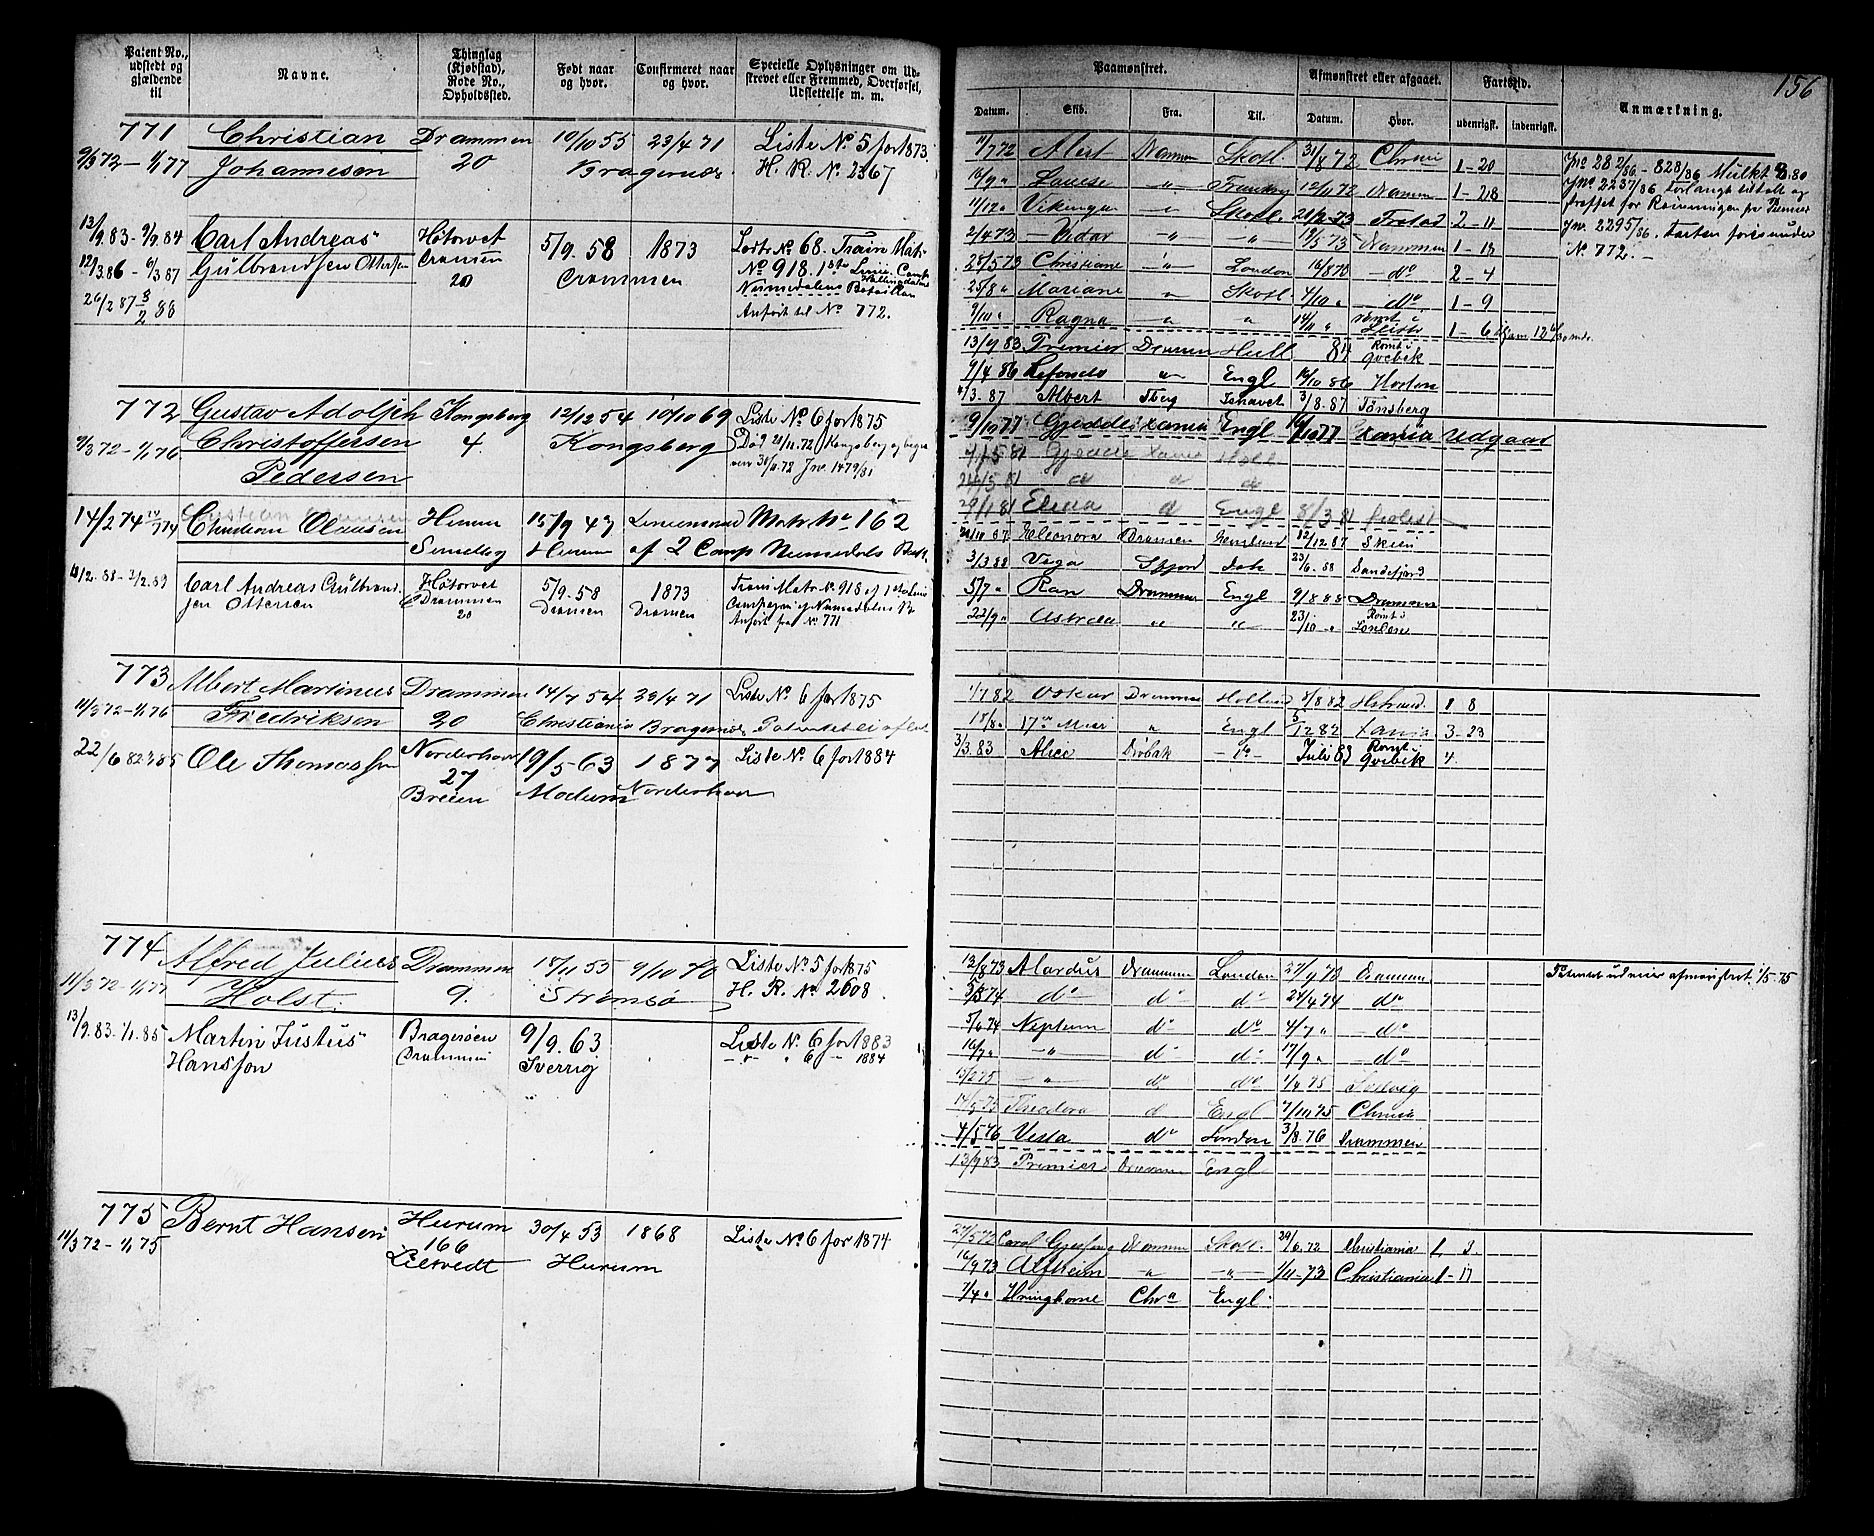 156
Patent No., udstedt og gjældende til
Navne.
Thinglag (Kjøbstad), Rode No., Opholdssted.
Født naar og hvor.
Confirmeret naar og hvor.
Specielle Oplysninger om Udskrevet eller Fremmed, Overførsel, Udslettelse m. m.
771 Christian Drammen 19/10 55 23/4 71 Liste No 5 for 1873.
9/3 72 - 1/1 77 Johannesen 20 Bragernæs H. R. No 2367
13/9 83 - 9/9 84 Carl Andreas Høtorvet 5/9. 58 1873 No 68. Train Matr
12/3 86 - 6/3 87 Gulbrandsen Ottersen Dramen Drammen No 918. 1ste Linie Comp
20 Nummedalens Bataillon
26/2 87 3/2 88 Anført til No 772.
772 Gustav Adolph Kongsberg 12/12 54 10/10 69 Liste No 6 for 1875
9/3 72 - 1/1 76 Christoffersen 4. Kongsberg Død 9 20/11 72 Kongsberg og begra
Pedersen ven 30/11 72 Jnr 1479/81
14/2 74 Christian Olaussen Hurum 15/9 47 Matr No 162
Hurum af 2 Comp Nummedals Bat.
13/2 88 - 3/2 89 Carl Andreas Gulbrand- Høtorvet 5/9. 58 1873 Train Matr. No. 918 af 1ste Linie
sen Ottersen Drammen Dramen Dramen Compagni af Nummedalens Bt
20 Anført fra No 771
773 Albert Martinus Drammen 14/7 54 23/4 71 Liste No. 6 for 1875
11/3 72 - 1/1 76 Fredriksen 20 Christiania Bragernæs
22/6 82 Ole Thomassen Norderhov 19/5 63 1877 Liste No. 6 for 1884
27
Breien Modum Norderhov
774 Alfred Julius Drammen 18/11 55 9/10 70 Liste No. 5 for 1875
11/3 72 - 1/1 77 Holst. 9. Strømsø H. R. No 2608.
13/9 83 - 1/1. 85 Martin Justus Bragerøen 9/9. 63 Liste No. 6 for 1883
Hansson Drammen Sverrig 6 1884
775 Bernt Hansen Hurum 30/4 53 1868 Liste No 6 for 1874
11/3 72 - 1/1 75 166
Hurum
Paamønstret.
Afmønstret eller afgaaet.
Fartstid.
Anmærkning.
Datum. Skib. Fra. Til. Datum. Hvor. udenrigsk. indenrigsk.
11/7 72 Alert Drammen Skotl. 31/8 72 Chania 1 - 20
16/9 " Louise " 12/11 72 Drammen 1 - 28
11/12 " Vikingen " Skotl. 21/2 73 2 - 11
2/4 73 Vidar " " 19/5 73 Drammen 1 - 18
25/5 73 Christiane " London 16/8 73 do 2 - 4
25/8 " Mariane " Skotl. 4/10 " do 1 - 9
9/10 " Ragna " " 14/11 " rømt i 1 - 6
Jno 28 2/86 - 828/86 Mulkt 8.80
Jno 2237/86 forlangt udtalt og
straffet for Rømningen fra Premier
Jnr. 2295/86. Farten føres under
No. 772. -
13/9 83 Premier Drammen Hull 84 Rømt i Qvebek
9/4 86 " Engl 16/10 86 Horten
4/3. 87 Albert Tberg 3/8. 87 Tønsberg
9/10 77 Gjedde xania Engl 16/10 77 xania udgaat
4/5 81 Gjedde xania
24/5 81 d d d
29/1 81 Elina d Engl 8/3 81
20/10 87 Eleonora Dramen England 12/12 87 Skien
3/3 88 Vega 23/6. 88 Sandefjord
5/7 " Ran Drammen Engl 9/8 88 Drammen
22/9 " Astrea " " 23/10 " Rømt i London
1/7 82 Oskar Drammen Holland 8/8 82 1 8
18/8 " 17de Mai " Engl 5/12 82 xania 3 - 23
3/3. 83 Alice Drøbak do Juli 83 Rømt i Qvebek 4.
12/8 73 Alardus Drammen London 27/9 73 Dramen
3/3 74 do do do 24/4 74 do
5/6 74 Neptun do do 4/7 " do
16/7 " " do do 17/9 " do
15/2 75 " do do 1/4 75
14/5 75 Theodora d Engl 7/10 75 Chania
4/5 76 Vesta do London 3/8. 76 Drammen
13/9 83 Premier Drammen Engl
27/5 72 Drammen Skotl. 29/6. 72 Christiania 1 3.
16/9 73 Alfheim " " 1/11 - 73 Christiania 1 - 17
7/4 " Hringhorne Chra Engl.